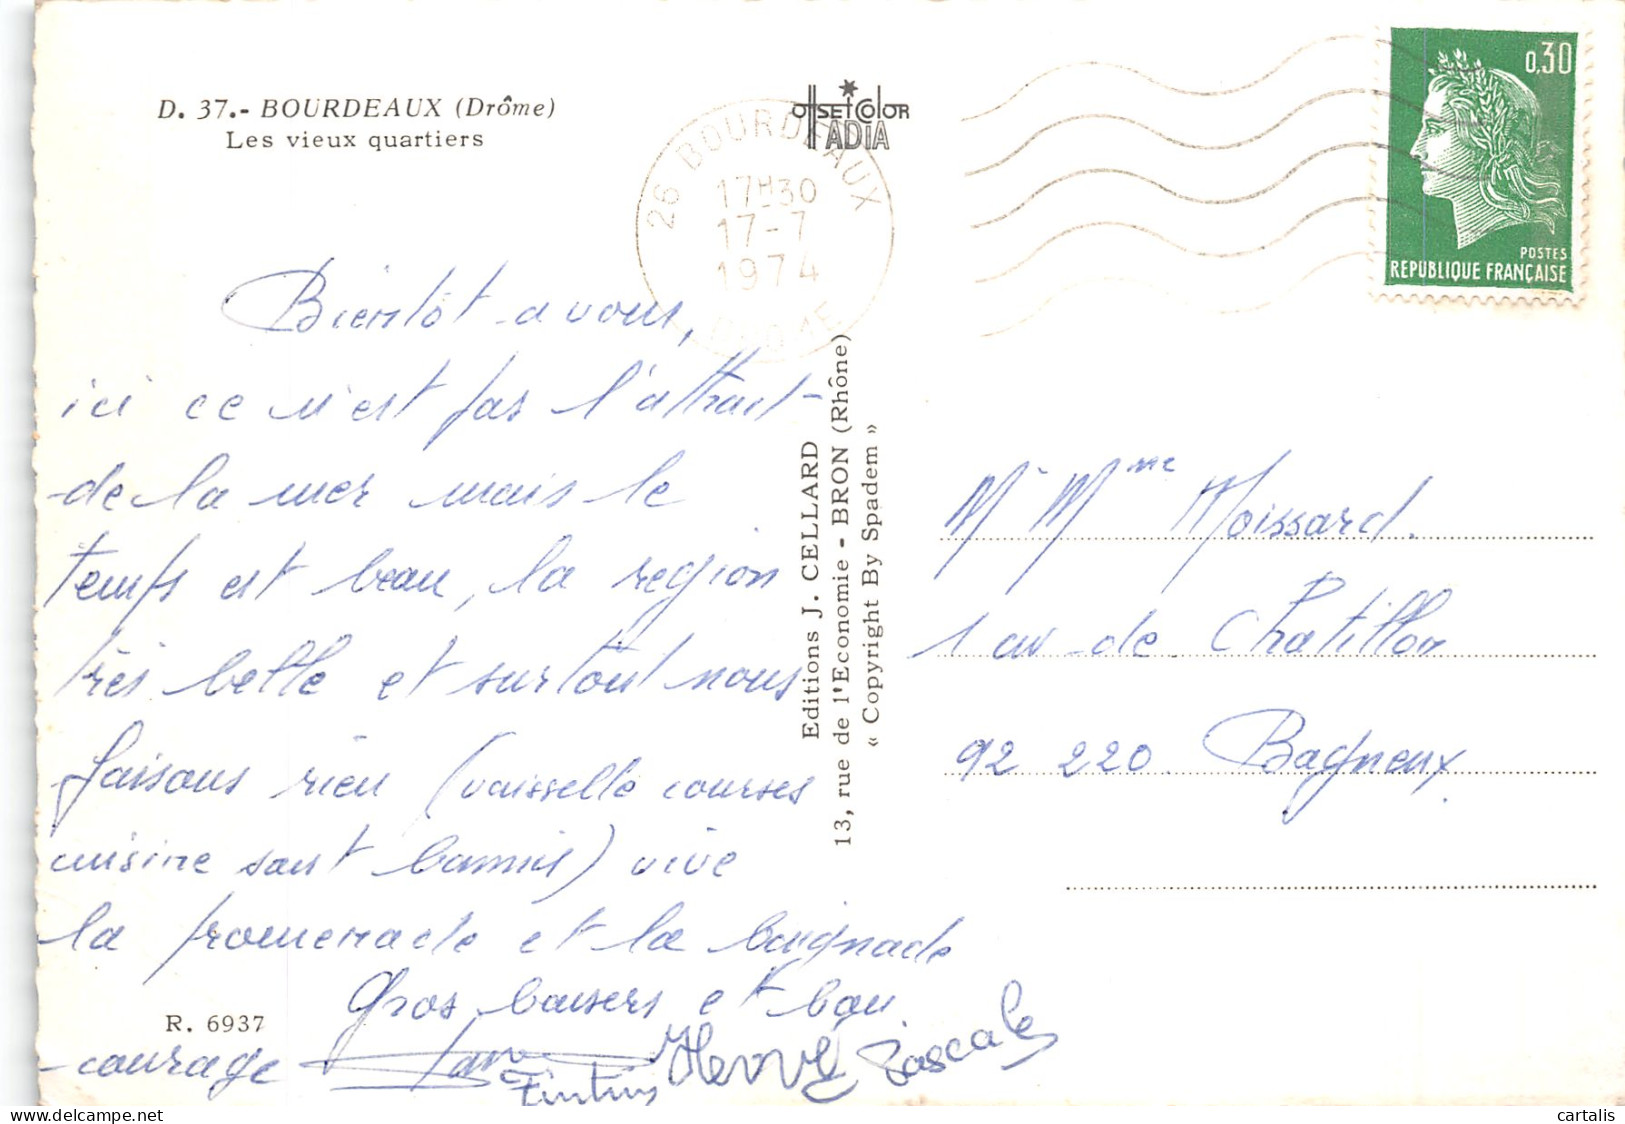 D. 37.- BOURDEAUX (Drôme)
Les vieux quartiers
OffSEt COLOR
ADIA
26 BOURDEAUX
17H30
17-7
1974
DROME
0,30
POSTES
REPUBLIQUE FRANÇAISE
Bientôt a vous,
ici ce n'est pas l'attrait
de la mer mais le
temps est beau, la region
très belle et surtout nous
faisons rien (vaisselle courses
cuisine sont bannis) vive
la promenade et la baignade
Gros baisers et bon
courage
Hervé Pascale
R. 6937
Editions J. CELLARD
13, rue de l'Economie - BRON (Rhône)
« Copyright By Spadem »
Mr Mme Moissard.
1 av de Chatillon
92 220 Bagneux.
cartalis